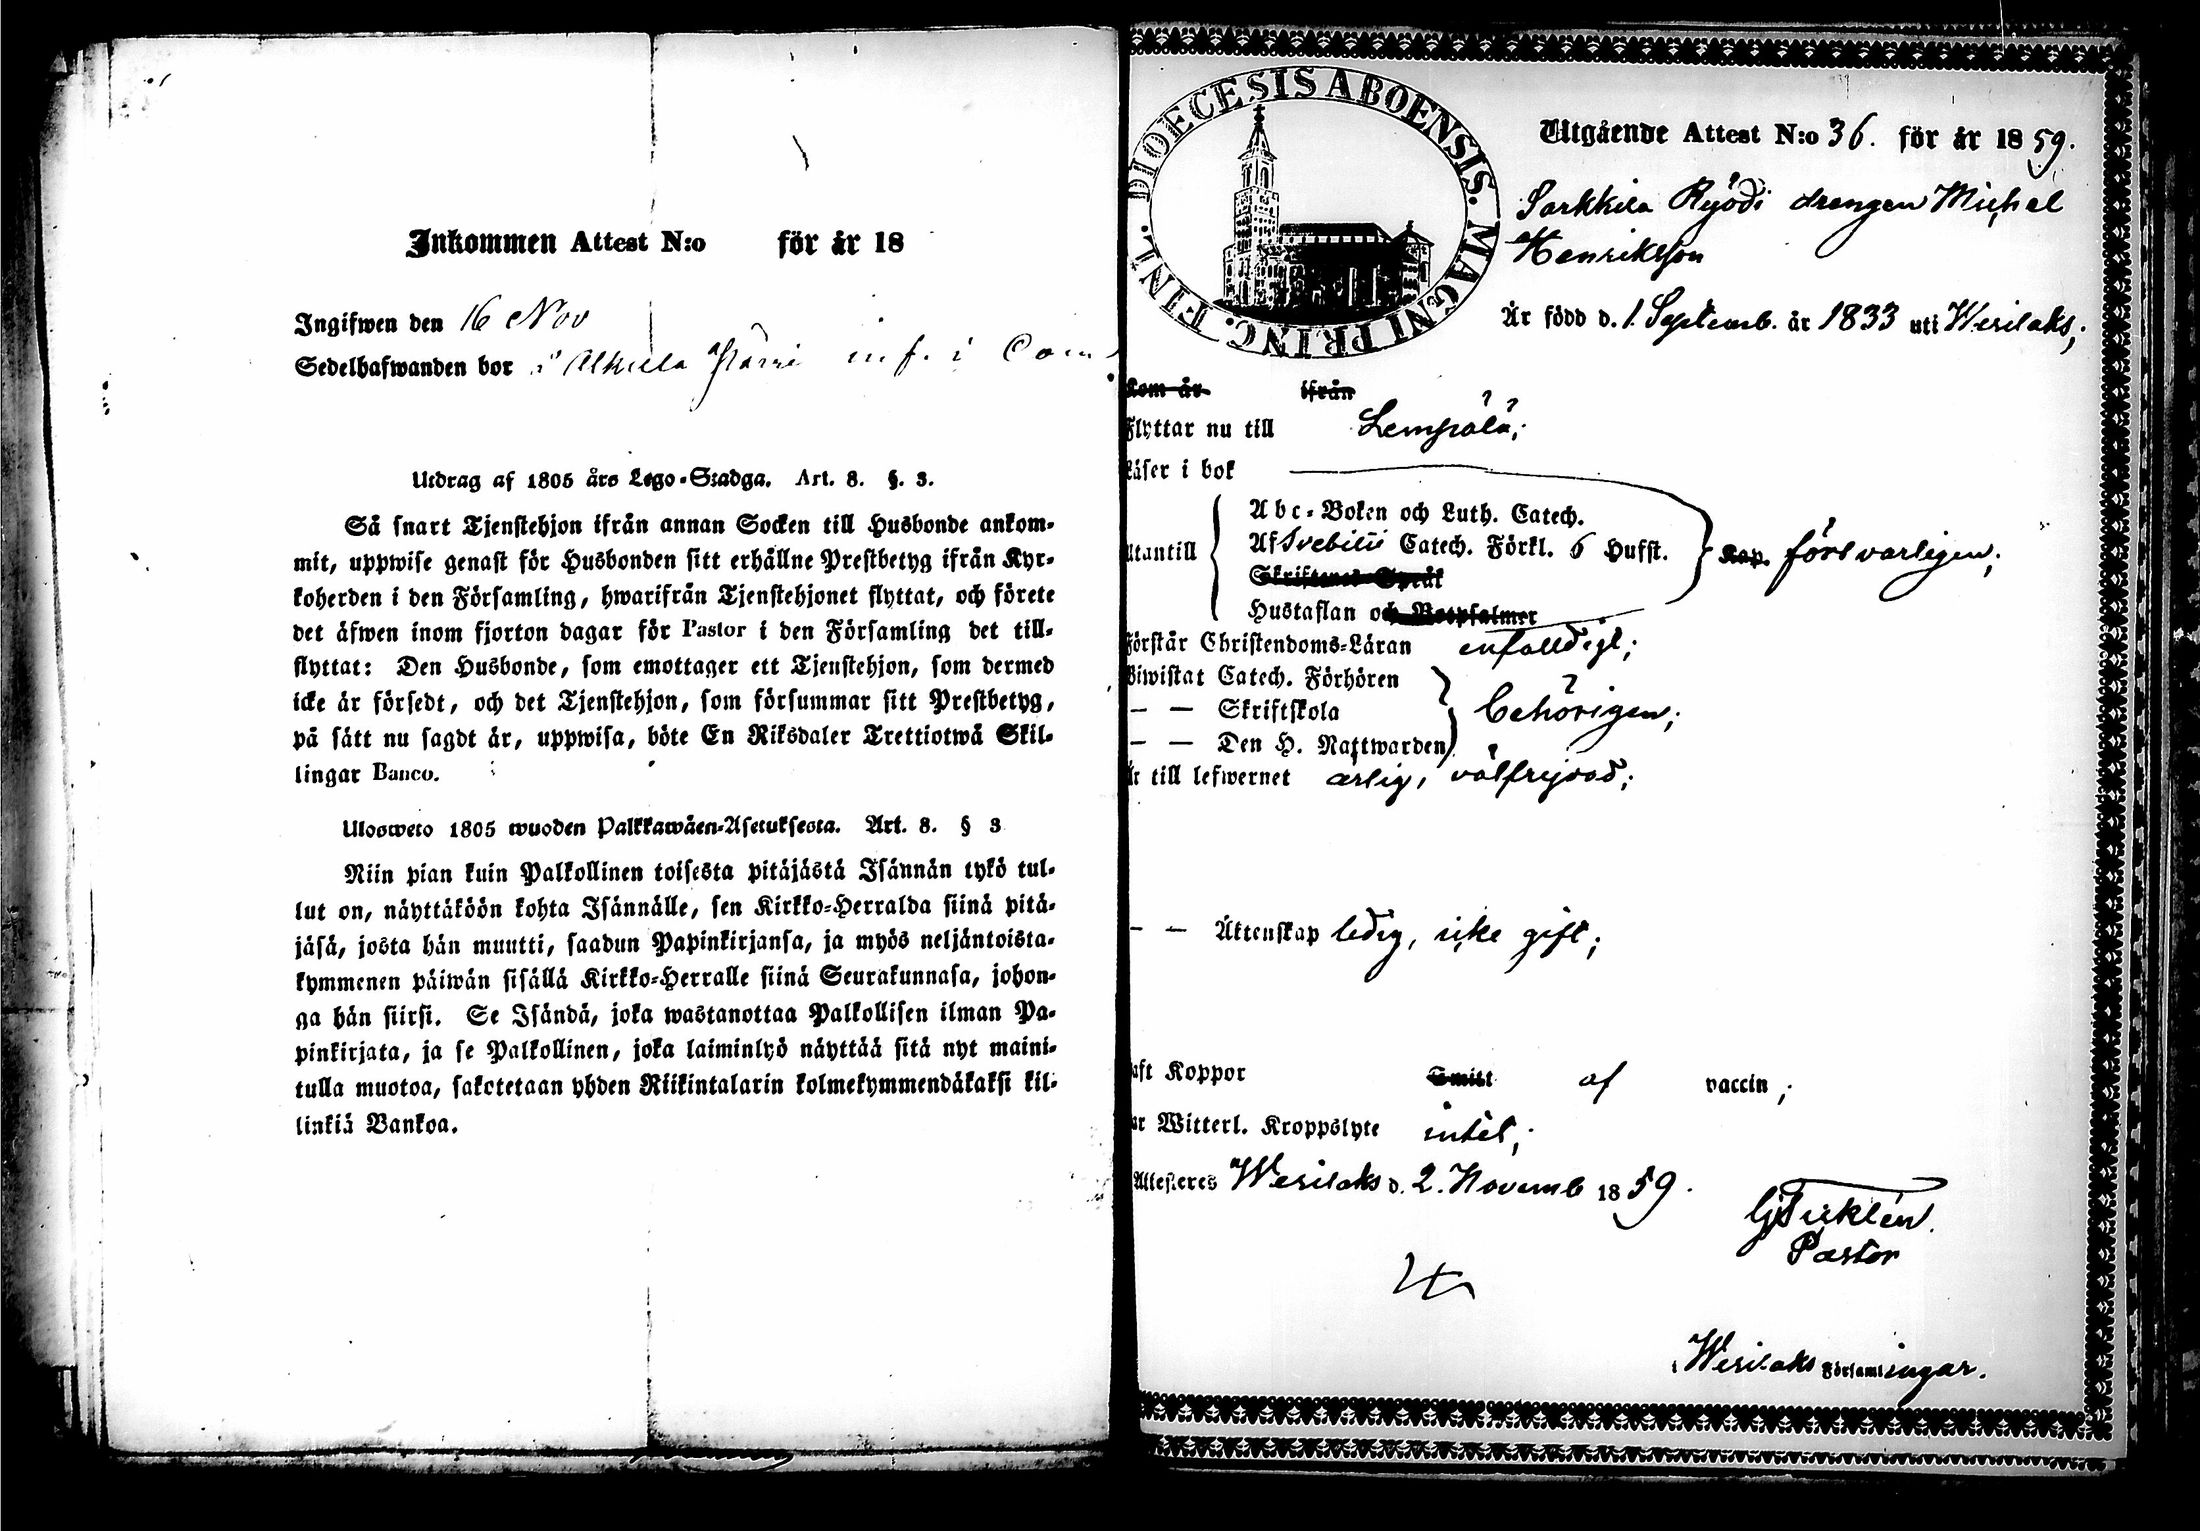 Inkommen Attest N:o för år 18
Ingifwen den 16 Nov
Sedelhafwanden bor i Alkula inf. i Com
Utdrag af 1805 års Lego-Stadga. Art. 8. §. 3.
Så snart Tjenstehjon ifrån annan Socken till Husbonde ankom-
mit, uppwise genast för Husbonden sitt erhållne Prestbetyg ifrån Kyr-
koherden i den Församling, hwarifrån Tjenstehjonet flyttat, och förete
det äfwen inom fjorton dagar för Pastor i den Församling det till-
flyttat: Den Husbonde, som emottager ett Tjenstehjon, som dermed
icke är försedt, och det Tjenstehjon, som försummar sitt Prestbetyg,
på sätt nu sagdt är, uppwisa, böte En Riksdaler Trettiotwå Skil-
lingar Banco.
Ulosweto 1805 wuoden Palkkawäen-Asetuksesta. Art. 8. § 3
Niin pian kuin Palkollinen toisesta pitäjästä Isännän tykö tul-
lut on, näyttäköön kohta Isännälle, sen Kirkko-Herralda siinä pitä-
jäsä, josta hän muutti, saadun Papinkirjansa, ja myös neljäntoista-
kymmenen päiwän sisällä Kirkko-Herralle siinä Seurakunnasa, johon-
ga hän siirsi. Se Isändä, joka wastanottaa Palkollisen ilman Pa-
pinkirjata, ja se Palkollinen, joka laiminlyö näyttää sitä nyt maini-
tulla muotoa, sakotetaan yhden Riikintalarin kolmekymmendäkaksi kil-
linkiä Bankoa.
DIOECESIS ABOENSIS. MAGNI PRINC. FINL.
Utgående Attest N:o 36. för år 1859.
Sarkkila Ryödi drengen Michel
Henriksson
Är född d. 1. Septemb. år 1833 uti Wesilaks;
Kom år ifrån
Flyttar nu till Lempälä;
Läser i bok
Abc-Boken och Luth. Catech.
Utantill Af Svebilii Catech. Förkl. 6 Hufst. Kap. försvarligen;
Skriftenes Språk
Hustaflan och Botpsalmer
Förstår Christendoms-Läran enfalldigt;
Biwistat Catech. Förhören
— — Skriftskola behörigen;
— — Den H. Nattwarden
Är till lefwernet ärlig, välfrejdad;
— — Äktenskap ledig, icke gift;
aft Koppor Smitt af vaccin;
ar Witterl. Kroppslyte intet;
Attesteres Wesilaks d. 2. Novemb 1859.
Pastor
i Wesilaks Församlingar.